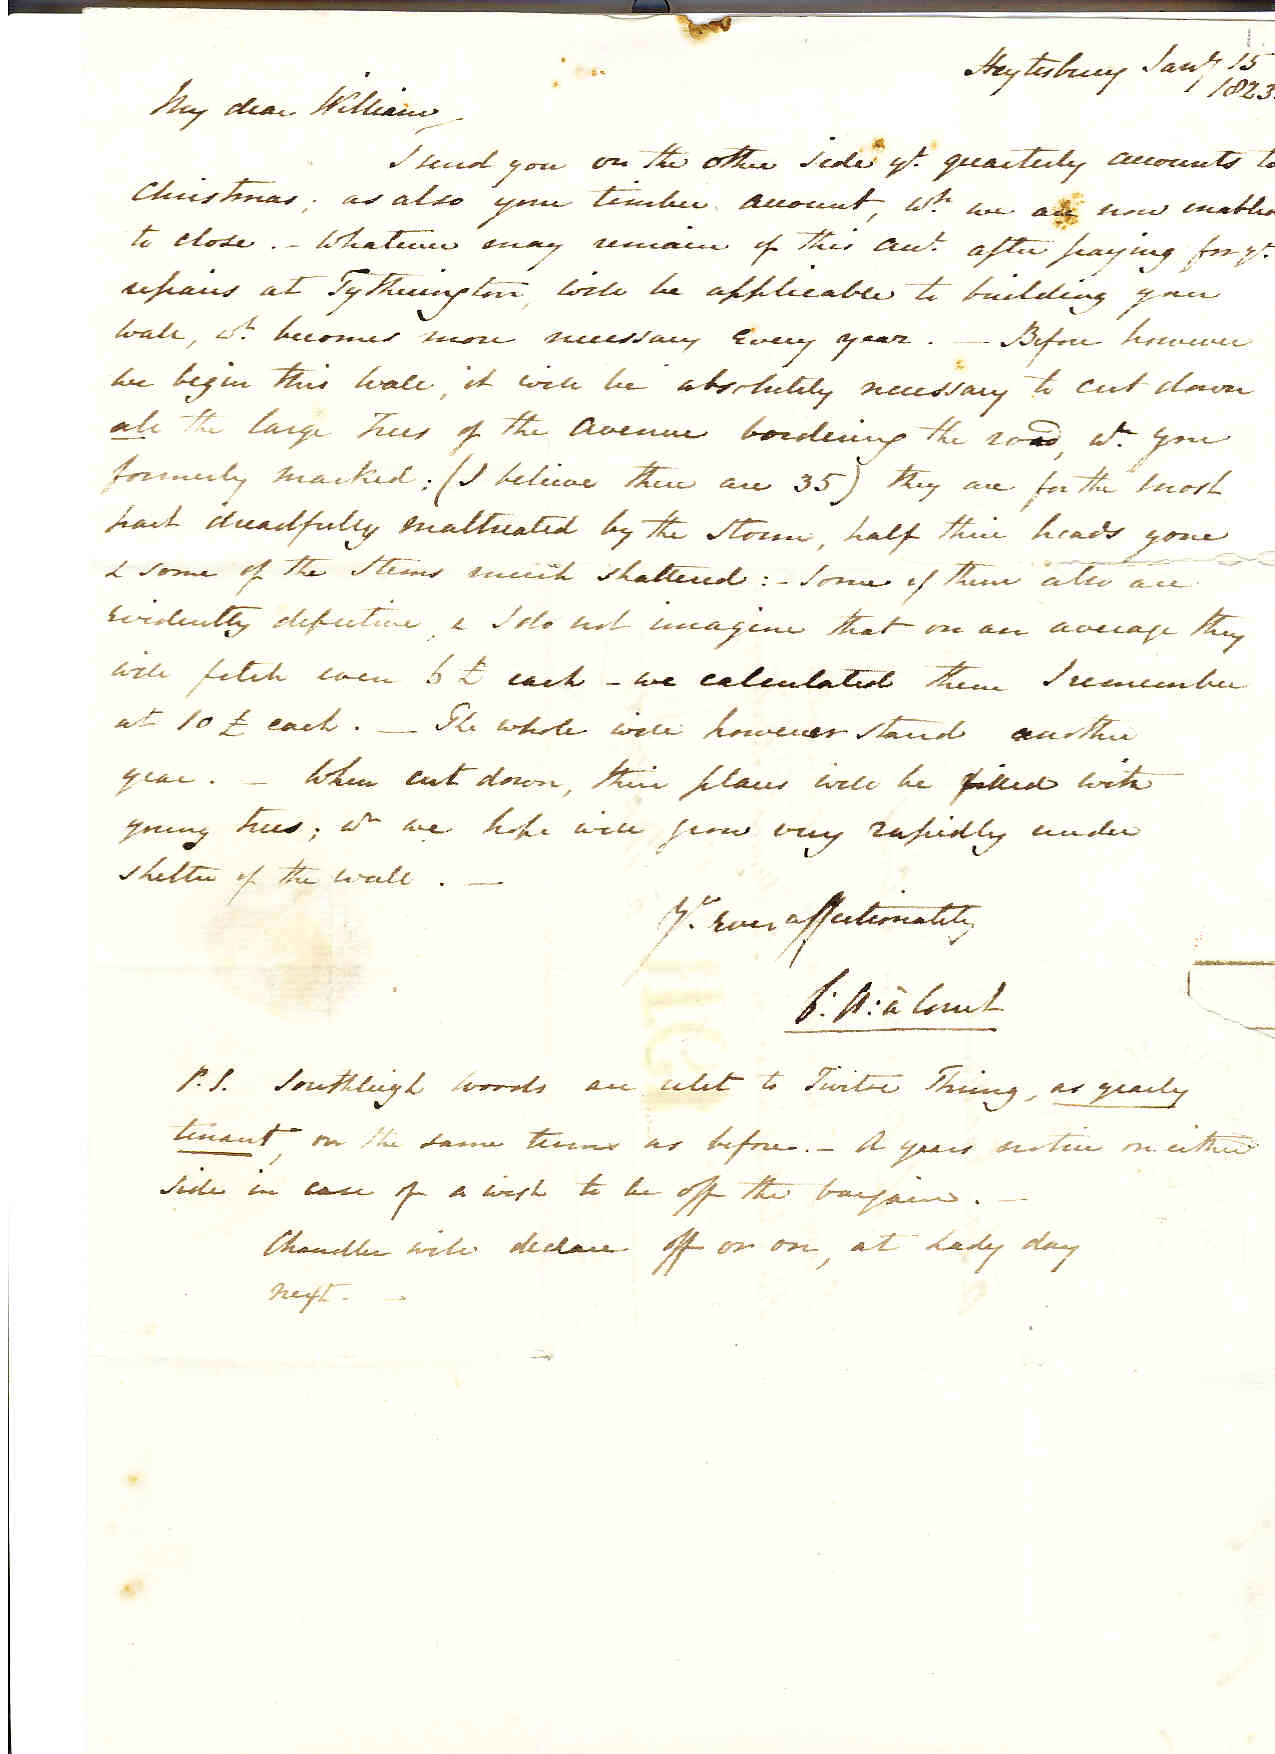 Heytesbury Jany 15
1823.
My dear William
I send you on the other side yr. quarterly accounts to
Christmas; as also your timber account, wh. we are now enabled
to close. – Whatever may remain of this acct. after paying for yr.
repairs at Tytherington, will be applicable to building your
wall, wh. becomes more necessary every year. — Before however
we begin this wall, it will be absolutely necessary to cut down
all the large Trees of the Avenue bordering the road, wh. you
formerly marked: (I believe there are 35) they are for the most
part dreadfully maltreated by the storm, half their heads gone
& some of the stems much shattered: – some of them also are
evidently defective, & I do not imagine that on an average they
will fetch even 6 £ each – we calculated them I remember
at 10 £ each. — The whole will however stand another
year. – When cut down, their places will be filled with
young trees; wh we hope will grow very rapidly under
shelter of the wall. —
Yrs. Ever affectionately
à Court
P.S. Southleigh Woods are relet to Thring, as yearly
tenant, on the same terms as before. – A years notice on either
side in case of a wish to be off the bargain. –
Chandler will declare off or on, at Lady day
next. –